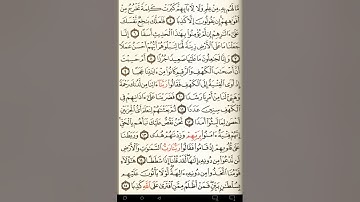 مَّا لَهُم بِهِۦ مِنْ عِلْمٍ وَلَا لِـَٔابَآئِهِمْ كَبُرَتْ كَلِمَةً تَخْرُجُ مِنْ
أَفْوَٰهِهِمْ إِن يَقُولُونَ إِلَّا كَذِبًا ٥ فَلَعَلَّكَ بَٰخِعٌ نَّفْسَكَ
عَلَىٰٓ ءَاثَٰرِهِمْ إِن لَّمْ يُؤْمِنُوا۟ بِهَٰذَا ٱلْحَدِيثِ أَسَفًا ٦ إِنَّا
جَعَلْنَا مَا عَلَى ٱلْأَرْضِ زِينَةً لَّهَا لِنَبْلُوَهُمْ أَيُّهُمْ أَحْسَنُ عَمَلًا
٧ وَإِنَّا لَجَٰعِلُونَ مَا عَلَيْهَا صَعِيدًا جُرُزًا ٨ أَمْ حَسِبْتَ
أَنَّ أَصْحَٰبَ ٱلْكَهْفِ وَٱلرَّقِيمِ كَانُوا۟ مِنْ ءَايَٰتِنَا عَجَبًا
٩ إِذْ أَوَى ٱلْفِتْيَةُ إِلَى ٱلْكَهْفِ فَقَالُوا۟ رَبَّنَآ ءَاتِنَا مِن لَّدُنكَ رَحْمَةً
وَهَيِّئْ لَنَا مِنْ أَمْرِنَا رَشَدًا ١٠ فَضَرَبْنَا عَلَىٰٓ ءَاذَانِهِمْ فِى
ٱلْكَهْفِ سِنِينَ عَدَدًا ١١ ثُمَّ بَعَثْنَٰهُمْ لِنَعْلَمَ أَىُّ ٱلْحِزْبَيْنِ
أَحْصَىٰ لِمَا لَبِثُوٓا۟ أَمَدًا ١٢ نَّحْنُ نَقُصُّ عَلَيْكَ نَبَأَهُم بِٱلْحَقِّ
إِنَّهُمْ فِتْيَةٌ ءَامَنُوا۟ بِرَبِّهِمْ وَزِدْنَٰهُمْ هُدًى ١٣ وَرَبَطْنَا
عَلَىٰ قُلُوبِهِمْ إِذْ قَامُوا۟ فَقَالُوا۟ رَبُّنَا رَبُّ ٱلسَّمَٰوَٰتِ وَٱلْأَرْضِ
لَن نَّدْعُوَا۟ مِن دُونِهِۦٓ إِلَٰهًا لَّقَدْ قُلْنَآ إِذًا شَطَطًا ١٤ هَٰٓؤُلَآءِ
قَوْمُنَا ٱتَّخَذُوا۟ مِن دُونِهِۦٓ ءَالِهَةً لَّوْلَا يَأْتُونَ عَلَيْهِم
بِسُلْطَٰنٍۭ بَيِّنٍ فَمَنْ أَظْلَمُ مِمَّنِ ٱفْتَرَىٰ عَلَى ٱللَّهِ كَذِبًا ١٥